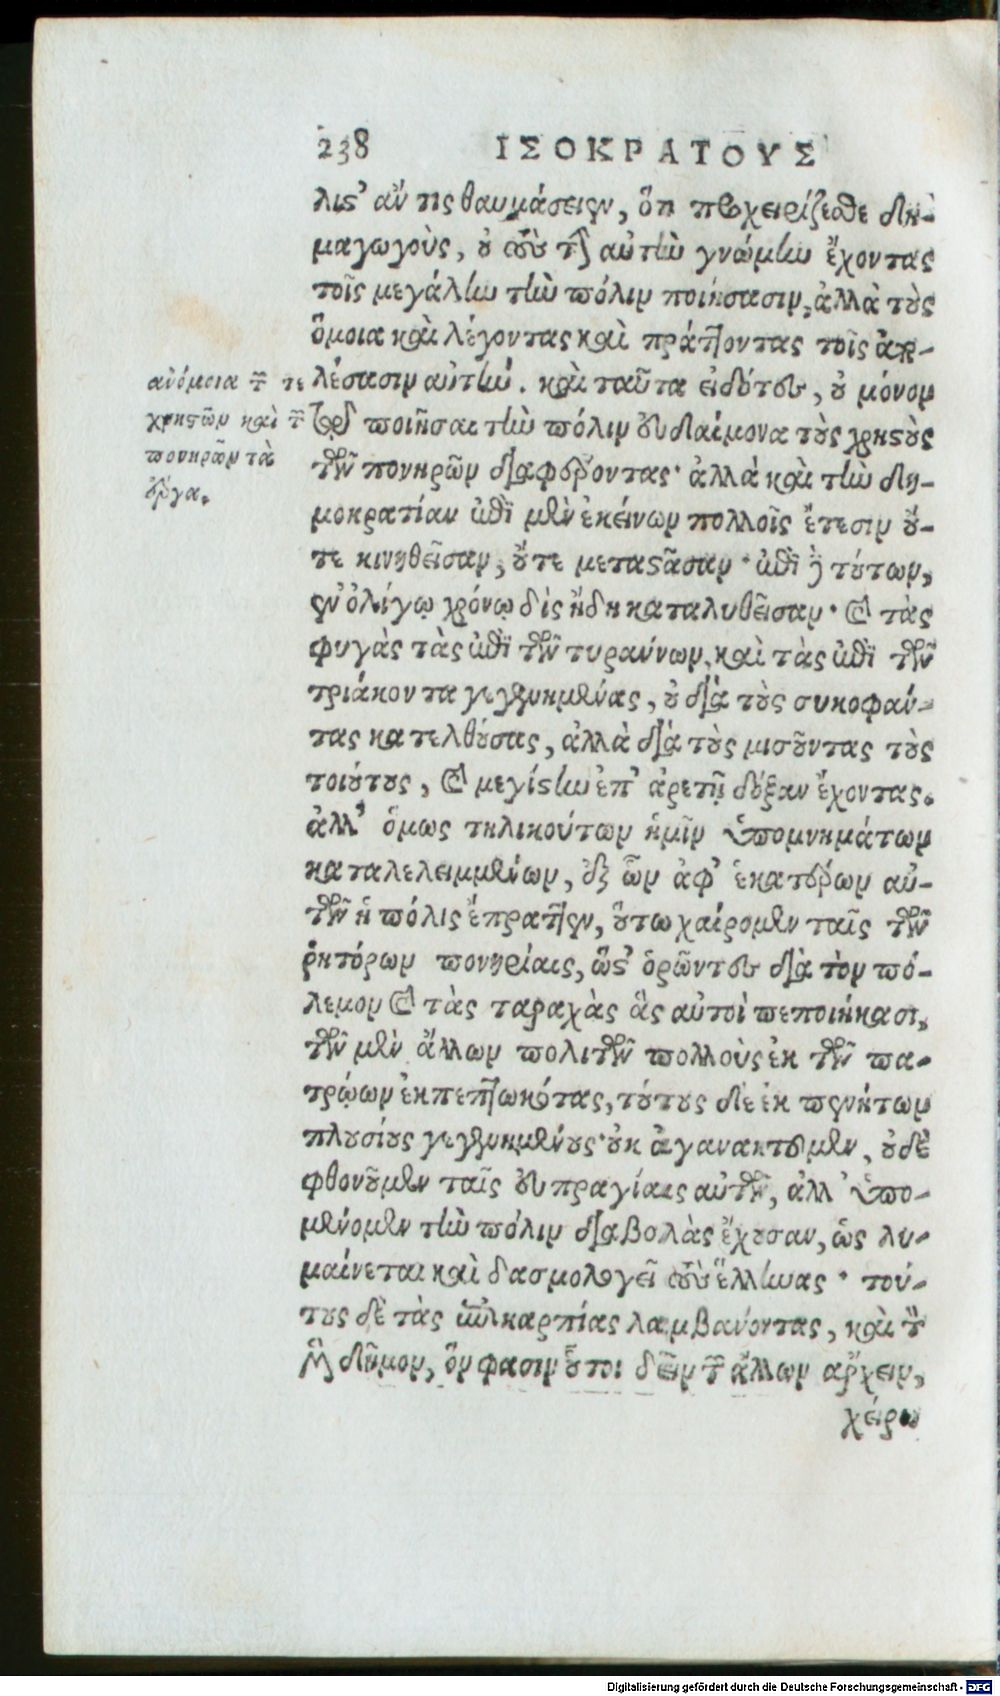 238 ΙΣΟΚΡΑΤΟΥΣ
λιϛ᾽ ἄν τις θαυμάσειεν, ὅτι προχειρίζεσθε δη-
μαγωγοὺς, οὐ τοὺς τὴν αὐτὴν γνώμην ἔχοντας
τοῖς μεγάλην τὴν πόλιν ποιήσασιν, ἀλλὰ τοὺς
ὅμοια καὶ λέγοντας καὶ πράττοντας τοῖς ἀπο-
λέσασιν αὐτήν. καὶ ταῦτα εἰδότες, οὐ μόνον
τῷ ποιῆσαι τὴν πόλιν εὐδαίμονα τοὺς χρηστοὺς
τῶν πονηρῶν διαφέροντας· ἀλλὰ καὶ τὴν δη-
μοκρατίαν ἐπὶ μὲν ἐκείνων πολλοῖς ἔτεσιν οὔ-
τε κινηθεῖσαν, οὔτε μεταστᾶσαν· ἐπὶ δὲ τούτων,
ἐν ὀλίγῳ χρόνῳ δὶς ἤδη καταλυθεῖσαν· καὶ τὰς
φυγὰς τὰς ἐπὶ τῶν τυράννων, καὶ τὰς ἐπὶ τῶν
τριάκοντα γεγενημένας, οὐ διὰ τοὺς συκοφάν-
τας κατελθούσας, ἀλλὰ διὰ τοὺς μισοῦντας τοὺς
τοιούτους, καὶ μεγίστην ἐπ᾽ ἀρετῇ δόξαν ἔχοντας.
ἀλλ᾽ ὅμως τηλικούτων ἡμῖν ὑπομνημάτων
καταλελειμμένων, ἐξ ὧν ἀφ᾽ ἑκατέρων αὐ-
τῶν ἡ πόλις ἔπραττεν, οὕτω χαίρομεν ταῖς τῶν
ῥητόρων πονηρίαις, ὥστ᾽ ὁρῶντες διὰ τὸν πό-
λεμον καὶ τὰς ταραχὰς ἃς αὐτοὶ πεποιήκασι,
τῶν μὲν ἄλλων πολιτῶν πολλοὺς ἐκ τῶν πα-
τρῴων ἐκπεπτωκότας, τούτους δὲ ἐκ πενήτων
πλουσίους γεγενημένους· οὐκ ἀγανακτοῦμεν, οὐδὲ
φθονοῦμεν ταῖς εὐπραγίαις αὐτῶν, ἀλλ᾽ ὑπο-
μένομεν τὴν πόλιν διαβολὰς ἔχουσαν, ὡς λυ-
μαίνεται καὶ δασμολογεῖ τοὺς ἕλληνας· τού-
τους δὲ τὰς ἐπικαρπίας λαμβάνοντας, καὶ τὸν
μὲν δῆμον, ὅν φασιν οὗτοι δεῖν τῶν ἄλλων ἄρχειν,
χείρω
ἀνόμοια τῶν τε
χρηστῶν καὶ τῶν
πονηρῶν τὰ
ἔργα.
Digitalisierung gefördert durch die Deutsche Forschungsgemeinschaft - DFG